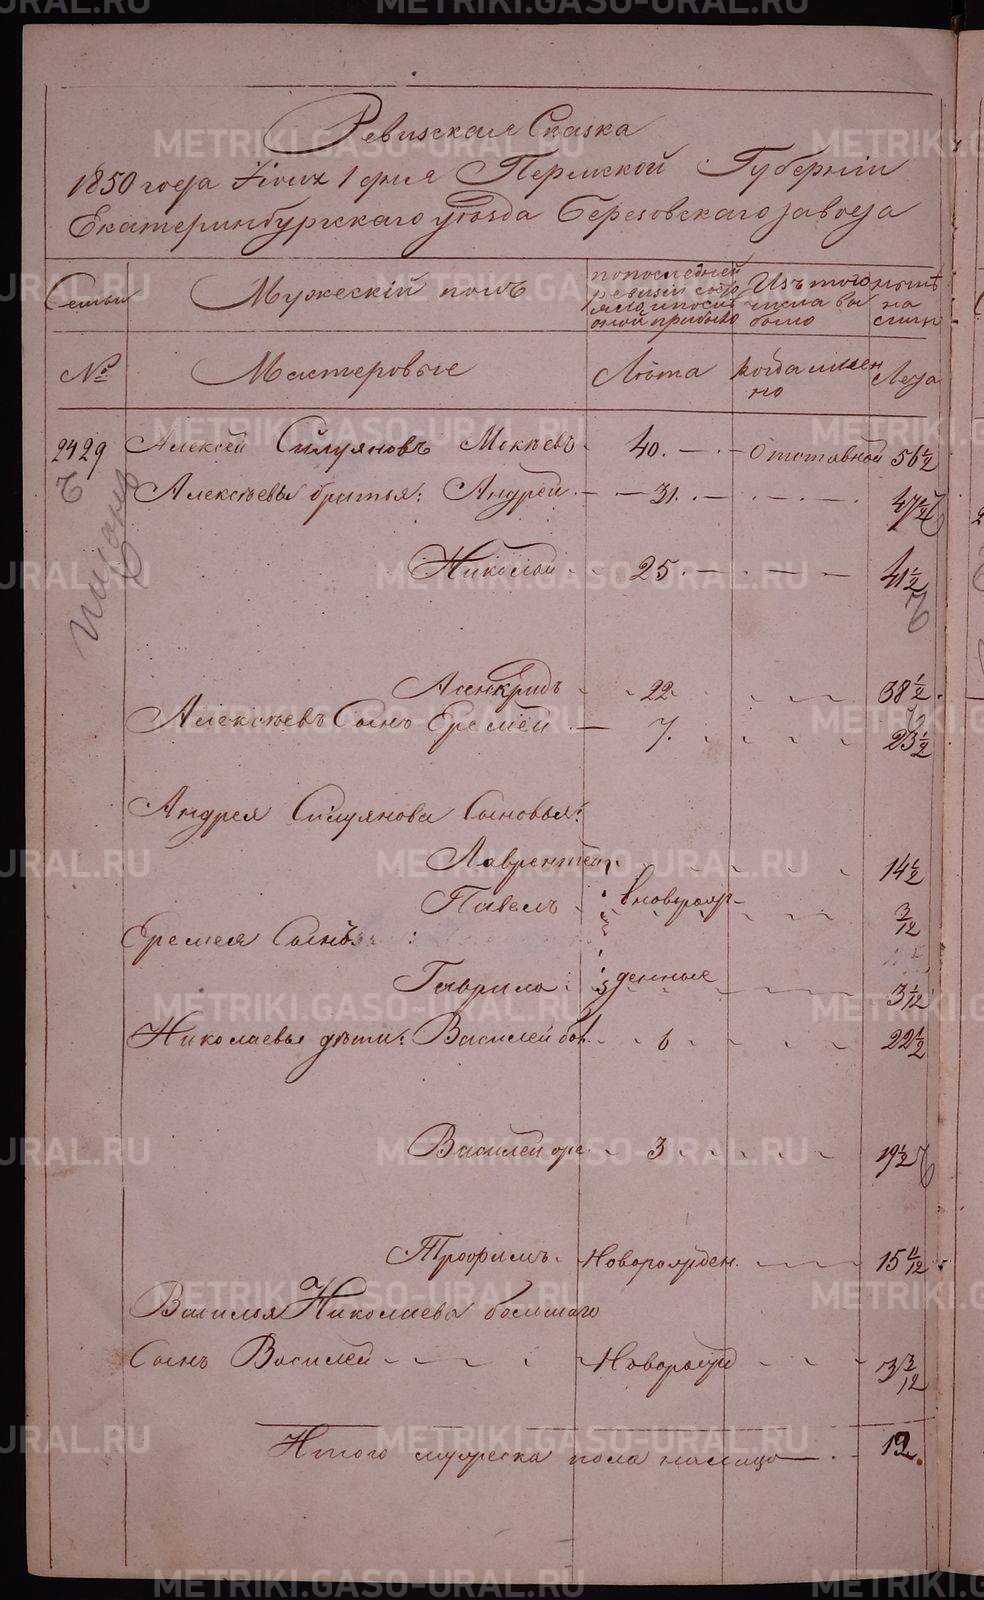 Ревизская Сказка
1850 года Июня 1 дня Пермской Губернiи
Екатеринбургскаго уѣзда Березовскаго завода
Семьи
Мужескiй полъ
по последней
ревизiи состо
яло и после
оной прибыло
Изъ того
числа вы
было
нынѣ
на
лицо
№
Мастеровые
Лѣта
когда имен
но
Лета
2429
Алексей Силуяновъ Мокѣевъ
40.
Отставной
56 1/2
Алексѣевы братья: Андрей
31.
47 1/2
Николай
25
41 1/2
Асенкридъ
22
38 1/2
Алексѣевъ Сынъ Еремѣй
7.
23 1/2
Андрея Силуянова Сыновья:
Лаврентей
14 1/2
Павелъ
вновьрож-
3/12
Еремея Сынъ:
Гаврило:
денные
3 1/12
Николаевы дѣти: Василей бол.
6
22 1/2
Василей сре
3
19 1/2
Трофимъ
Новорожден.
15 11/12
Василья Николаева большаго
Сынъ Василей
Новорожд
3 3/12
Итого мужеска пола налицо
12.
METRIKI.GASO-URAL.RU